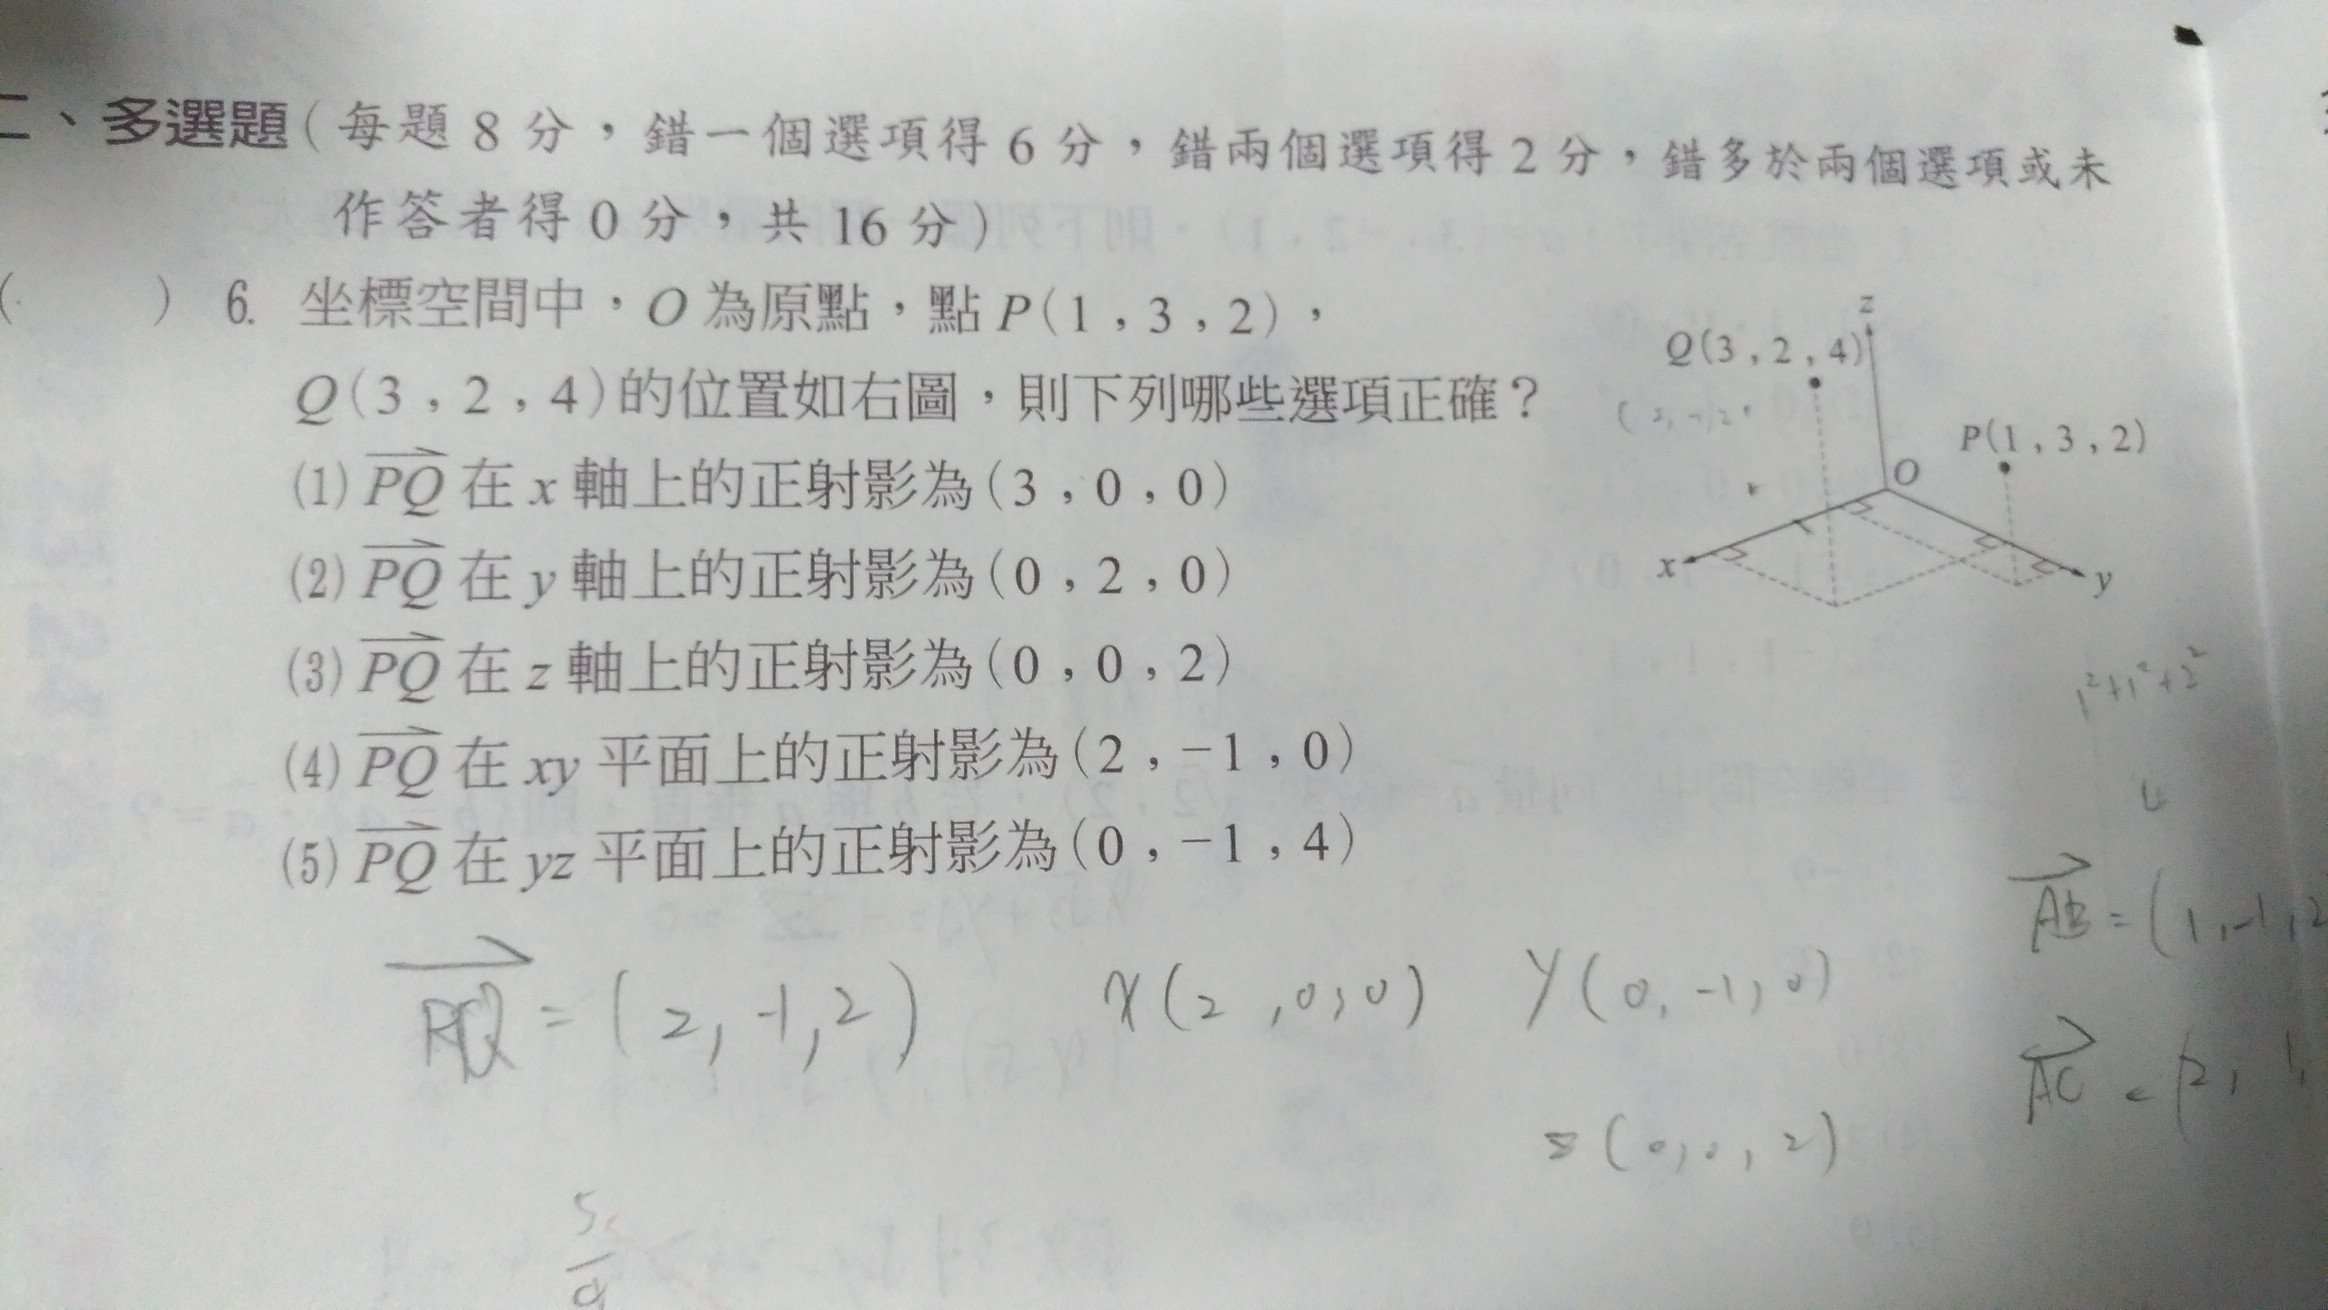 二、多選題(每題 8 分，錯一個選項得 6 分，錯兩個選項得 2 分，錯多於兩個選項或未
作答者得 0 分，共 16 分)
(　　) 6. 坐標空間中，O 為原點，點 P(1，3，2)，
Q(3，2，4)的位置如右圖，則下列哪些選項正確？
(1) PQ 在 x 軸上的正射影為(3，0，0)
(2) PQ 在 y 軸上的正射影為(0，2，0)
(3) PQ 在 z 軸上的正射影為(0，0，2)
(4) PQ 在 xy 平面上的正射影為(2，−1，0)
(5) PQ 在 yz 平面上的正射影為(0，−1，4)
z
Q(3，2，4)
P(1，3，2)
O
x
y
1²+1²+2²
AB = (1,-1,2
AC = (2, 1,
PQ = (2,-1,2)
X(2,0,0)
Y(0,-1,0)
z(0,0,2)